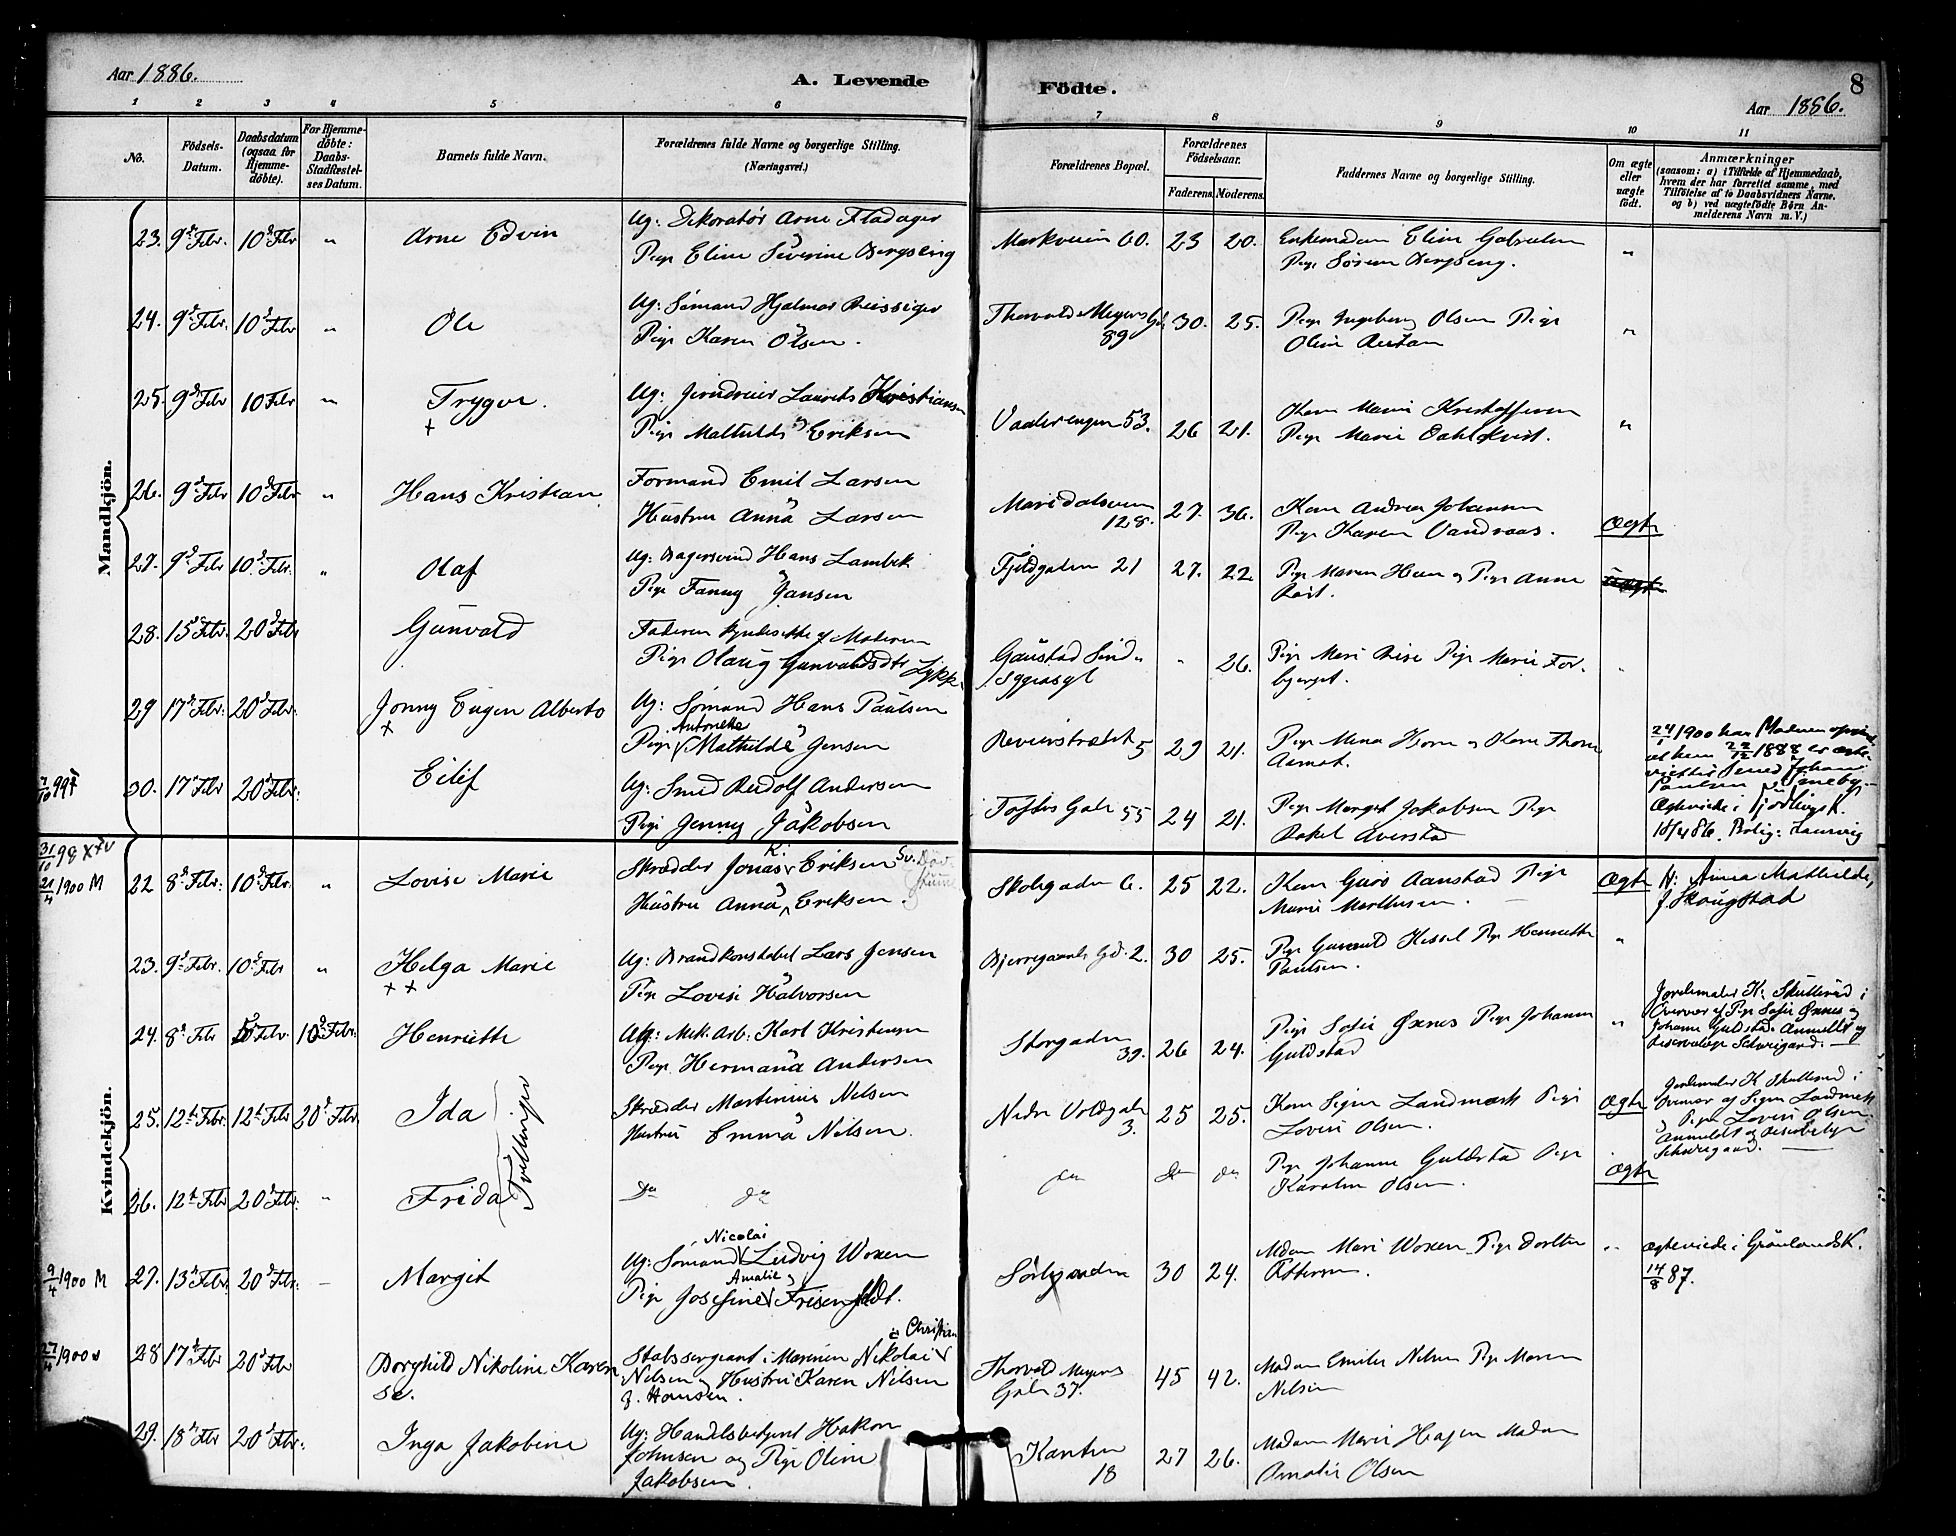 Aar 1886.
A. Levende
Födte.
8
Aar 1886.
1 2 3 4 5 6 7 8 9 10 11
No.
Födsels-Datum.
Daabsdatum (ogsaa for Hjemmedöbte).
For Hjemmedöbte: Daabs-Stadfæstelses Datum.
Barnets fulde Navn.
Forældrenes fulde Navne og borgerlige Stilling. (Næringsvei.)
Forældrenes Bopæl.
Forældrenes Födselsaar.
Faderens. Moderens.
Faddernes Navne og borgerlige Stilling.
Om ægte eller uægte födt.
Anmærkninger (saasom: a) i Tilfælde af Hjemmedaab, hvem der har forrettet samme, med Tilföielse af to Daabsvidners Navne. og b) ved uægtefödte Börn Anmelderens Navn m. V.)
Mandkjön.
23. 9de Febr. 10de Febr " Arne Edvin
Ug: Dekoratør Arne Fladager
Pige Eline Severine Bergseng
Markveien 60. 23 20. Enkemadam Elise
Pige Bergseng. "
24. 9de Febr. 10de Febr " Ole
Ug: Sømand Hjalmar Reissiger
Pige Karen Olsen.
Thorvald Meyers Gd 89 30. 25. Pige Ingeborg Olsen Pige
"
25. 9de Febr 10 Febr " Trygve. +
Ug: Jerndreier Laurits Kristiansen
Pige Mathilde Eriksen
Vaalerengen 53. 26 21. Kone Marie Kristoffersen
Pige Marie Dahlkvist. "
26. 9de Febr 10de Febr " Hans Kristian
Formand Emil Larsen
Hustru Anna Larsen
Maridalsveien 128. 27. 36. Kone Andrea Johannesen
Pige Karen Vandraas. Ægte
27. 9de Febr 10de Febr. " Olaf
Ug: Bagersvend Hans Lambek
Pige Fanny Jansen
Fjeldgaden 21 27. 22 Pige Maren Hein og Pige Anna
28. 15de Febr. 20de Febr Gunvald
Faderen
Pige Olaug Gunvaldsdtr
Gaustad Sind-
Sygeasyl " 26. Pige Mari Pige Marie
"
29 17de Febr. 20de Febr. Jonny Eugen Alberto +
Ug: Sømand Hans Paulsen
Antonette
Pige Mathilde Jensen
5 29 21. Pige Mina Horn og Kone Thora
Aamot.
24/1 1900 har Moderen
at hun 22/12 1888 er ægte-
viet
Paulsen
30. 17de Febr 20de Febr: Eilif
Ug: Smed Rudolf Andersen
Pige Jenny Jakobsen
Toftes Gade 55 24 21. Pige Margit Jakobsen Pige
Rakel Averstad
Ægteviede i K.
18/4 86. Bolig: Laurvig
Kvindekjön.
31/10 98
21/4 1900 M 22 8de Febr. 10de Febr. " Lovise Marie
Skrædder Jonas K: Eriksen Sv.
Hustru Anna Eriksen.
Skolegaden 6. 25 22. Kone Guro Aanstad Pige
Marie Marthinsen. Ægte N: Anna Mathilde,
f. Skougstad
23. 9de Febr. 10de Febr " Helga Marie + +
Ug: Brandkonstabel Lars Jensen
Pige Lovise Halvorsen
Bjerregaards Gd. 2. 30 25. Pige Kessel Pige Henriette
Paulsen. "
24. 8de Febr 10de Febr. Henriette
Ug: Mek. Arb: Karl Kristensen
Pige Hermana Andersen
Storgaden 39. 26 24. Pige Sofie Øxnes Pige Johanne
Guldstad "
Jordemoder K: Skullerud i
Overvær af Pige Sofie Øxnes og
Johanne Guldstad. Anmeldt og
Schweigaard.
25. 12te Febr. 12te Febr 20de Febr. Ida
Tvillinger
Skrædder Martinius Nilsen
Hustru Emma Nilsen.
Nedre Voldgade 3. 25 25. Kone Signe Landmark Pige
Lovise Olsen. Ægte
Jordemoder K Skullerud i
Overvær af Signe Landmark
Pige Lovise Olsen.
Anmeldt og
Schweigaard.
26. 12te Febr 20de Febr. " Frida
Do do
do Do do Pige Johanne Guldstad Pige
Karoline Olsen. Ægte
9/4 1900 M 27. 13de Febr. 20de Febr. Margit
Nicolai
Ug: Sømand Ludvig Woxen
Amalie
Pige Josefine Frisenfeldt.
30 24. Madam Mari Woxen Pige Dorthea
" Ægteviede i Grönlands K.
14/8 87.
27/4 1900 28 17de Febr 20de Febr Borghild Nikoline Karense.
Christian
Stabssergeant i Marinen Nikolai
Nilsen og Hustru Karen Nilsen
f. Hansen.
Thorvald Meyers
Gade 37. 45 42. Madam Emilie Nilsen Pige Maren
Nilsen
29. 18de Febr 20de Febr. Inga Jakobine
Ug: Handelsbetjent Hakon
Johnsen og Pige Oline
Jakobsen.
18 27 26. Madam Marie Hagen Madam
Amalie Olsen